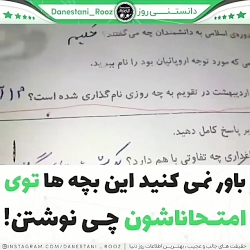 دانستنی روز
Danestani_Rooz
دوره‌ی اسلامی به دانشمندان چه می‌گفتند؟ حکیم
می که مورد توجه اروپائیان بود را نام ببرید.
اردیبهشت در تقویم به چه روزی نام‌گذاری شده است؟ ۱۲
پاسخ کامل دهید.
چه تفاوتی با هم دارد؟
باور نمی کنید این بچه ها توی
امتحاناشون چی نوشتن!
حقیقت های جالب و عجیب ، بهترین اطلاعات روز دنیا
INSTAGRAM.COM/DANESTANI_ROOZ